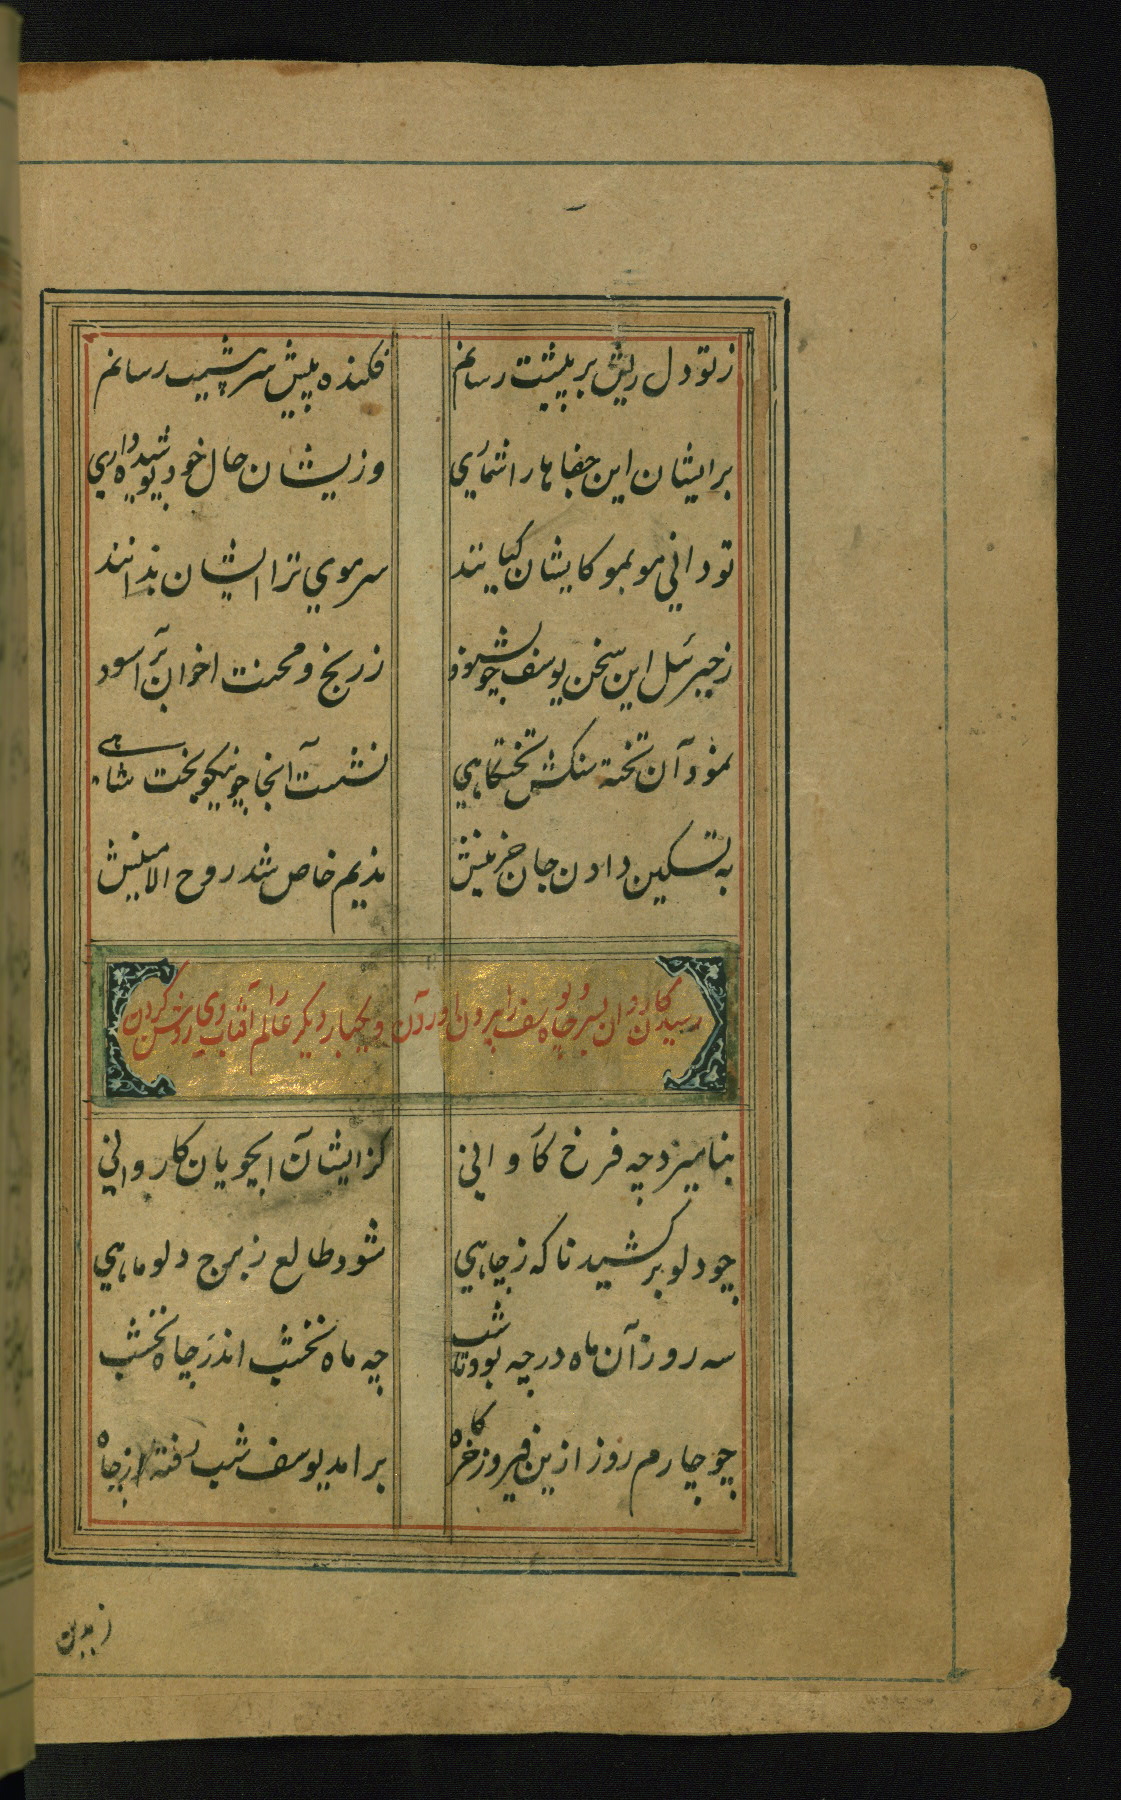 زتو دل ریش بر پیشت رسانم فکنده پیش سر پیشت رسانم
بر ایشان این جفاها را شماری وزیشان حال خود پوشیده داری
تو دانی مو بمو کایشان کیانند سر موی ترا ایشان بدانند
زجبرئیل این سخن یوسف چو بشنود زرنج و محنت اخوان برآسود
نمود آن تخته سنکش تختکاهی نشست آنجا چو نیکو بخت شاهی
به تسکین دادن جان حزینش ندیم خاص شد روح الامینش
رسیدن کاروان بسر چاه و یوسف را بیرون آوردن و یکبار دیکر عالم را آفتاب وی روشن کردن
بنامیزد چه فرخ کاروانی کز ایشان آبجویان کاروانی
چو دلو بر کشید ناکه زچاهی شود طالع زبرج دلو ماهی
سه روز آن ماه در چه بود تا شب چه ماه نخشب اندر چاه نخشب
چو چارم روز ازین فیروزه خرکاه برامد یوسف شب رفته از چاه
زمدین